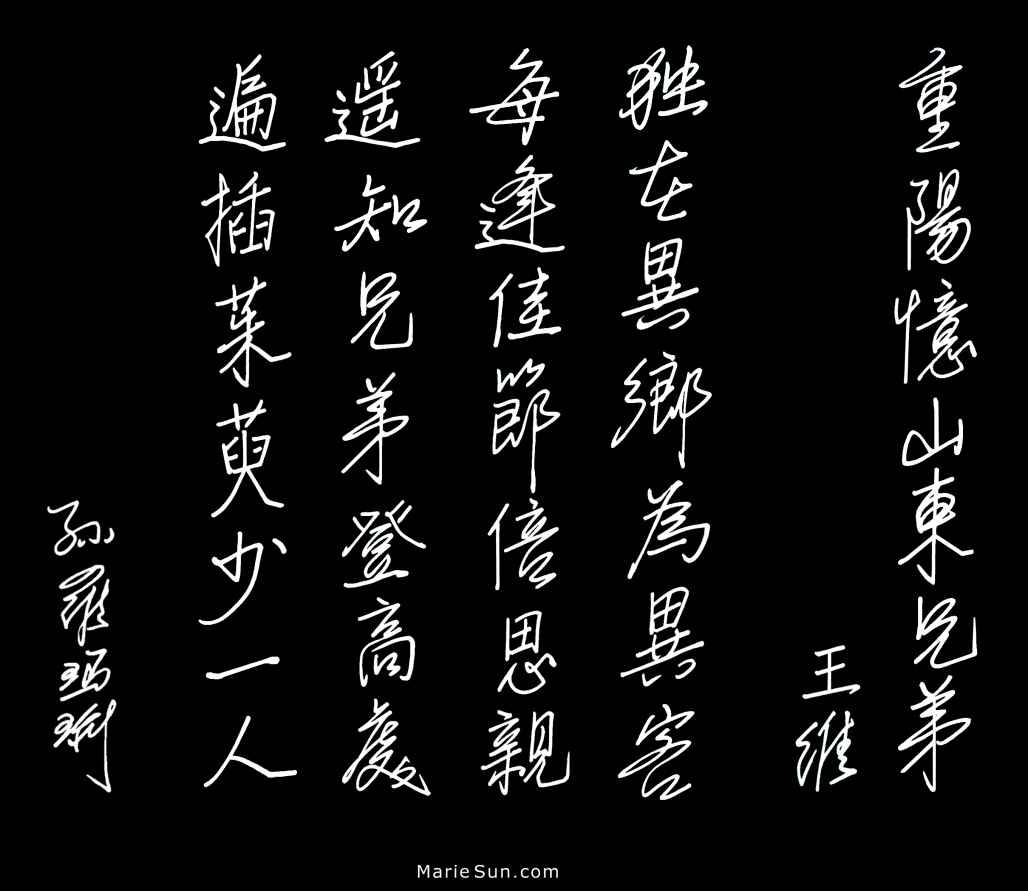 重陽憶山東兄弟
王維
独在異鄉為異客
每逢佳節倍思親
遥知兄弟登高處
遍插茱萸少一人
孫羅瑪琍
MarieSun.com